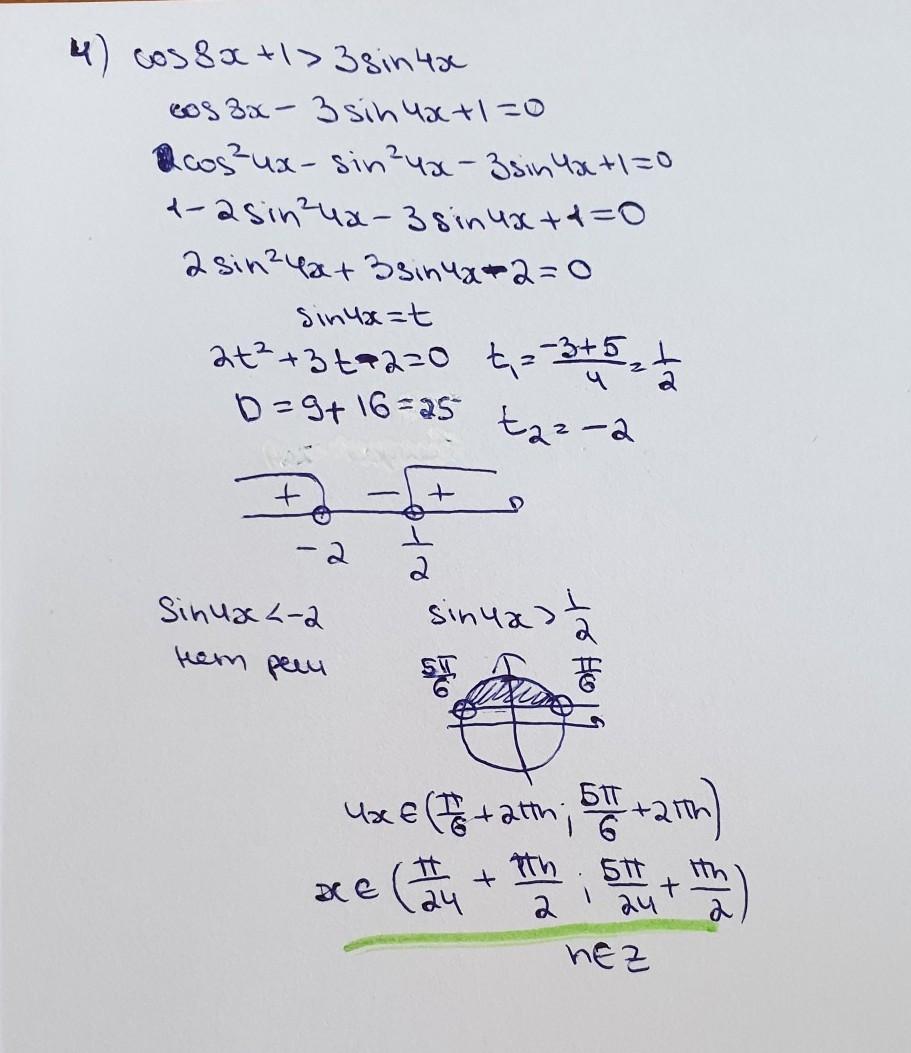 4) cos8x+1>3sin4x
cos8x - 3sin4x+1=0
cos²4x - sin²4x - 3sin4x+1=0
1-2sin²4x - 3sin4x+1=0
2sin²4x+3sin4x-2=0
sin4x=t
2t²+3t-2=0 t₁=(-3+5)/4=1/2
D=9+16=25 t₂=-2
+ - +
-2 1/2
Sin4x<-2 sin4x>1/2
нет реш 5π/6 π/6
4x∈(π/6+2πn; 5π/6+2πn)
x∈(π/24+πn/2; 5π/24+πn/2)
n∈Z